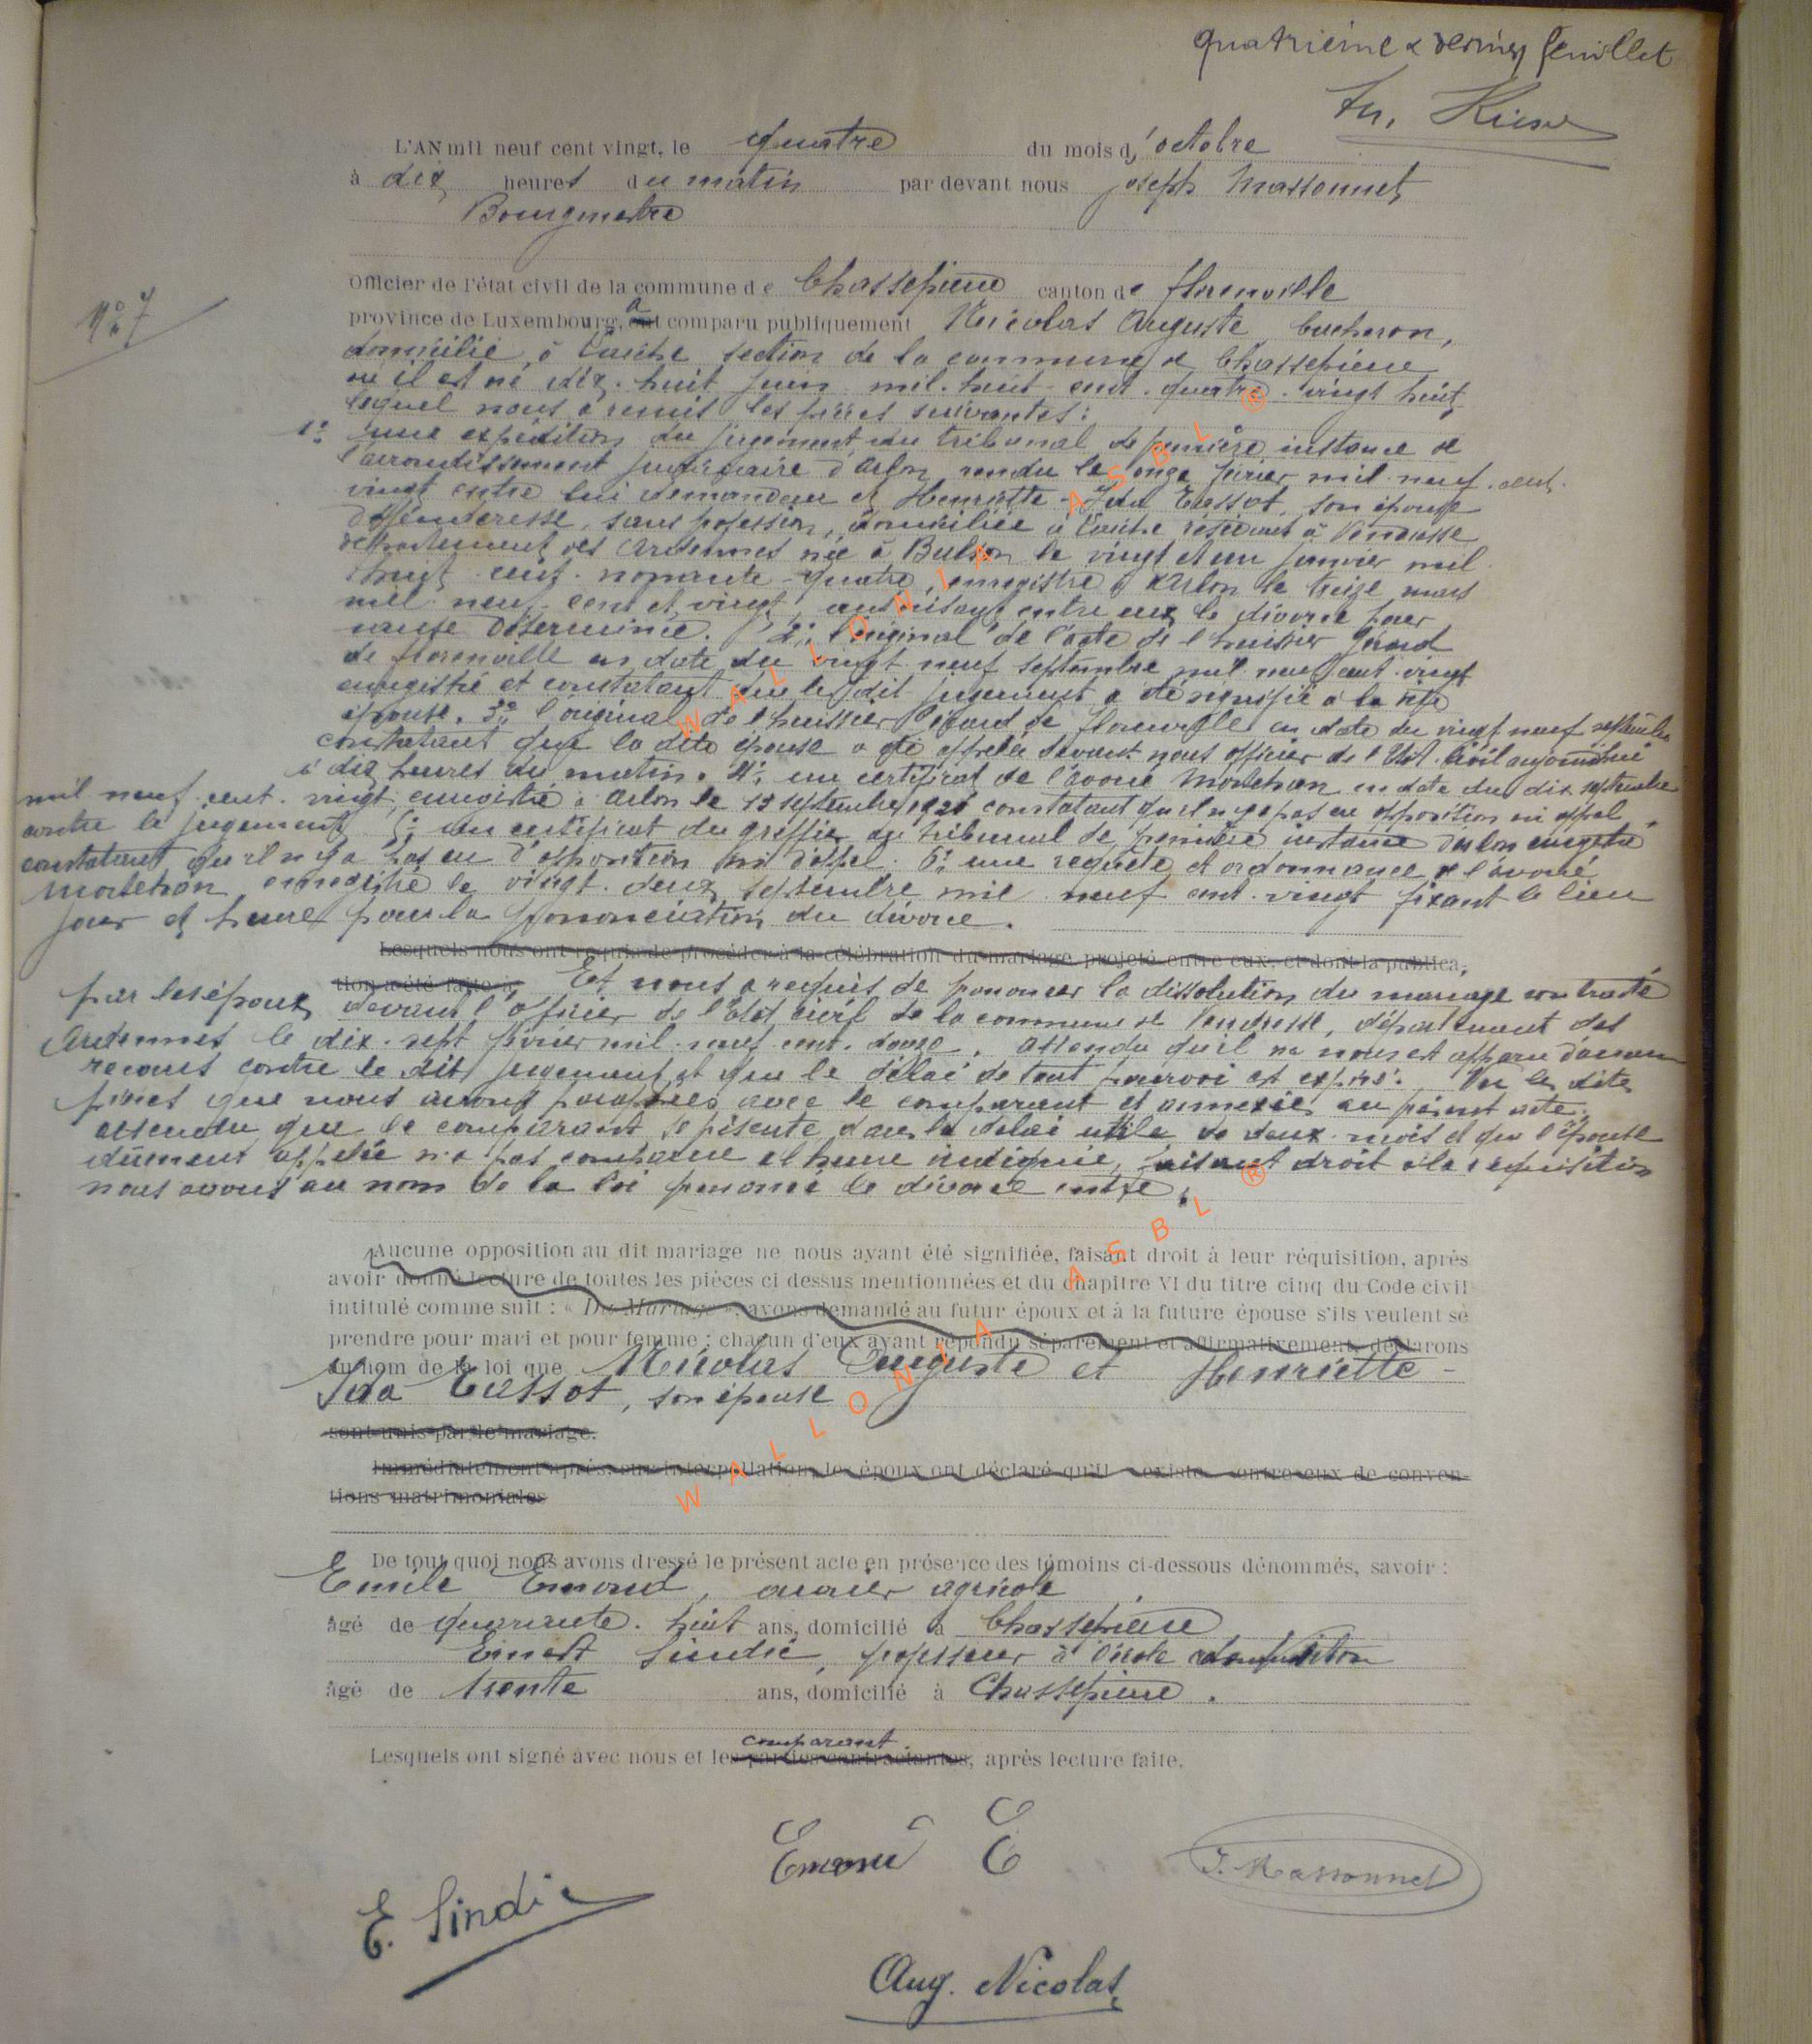 quatrième & dernier feuillet
L'AN mil neuf cent vingt, le quatre du mois d'octobre
à dix heures du matin par devant nous Joseph Massonnet,
Bourgmestre
N° 7
Officier de l'état civil de la commune de Chassepierre canton de Florenville
province de Luxembourg, a comparu publiquement Nicolas Auguste bucheron,
domicilié à Laiche section de la commune de Chassepierre
où il est né dix-huit juin mil-huit-cent-quatre-vingt huit
lequel nous a remis les pièces suivantes:
1° une expédition du jugement du tribunal de première instance de
l'arrondissement judiciaire d'Arlon rendu le onze février mil-neuf-cent-
vingt entre lui demandeur et Henriette-Ida Tassot, son épouse
défenderesse, sans profession, domiciliée à Laiche résidant à Vendresse
département des Ardennes née à Bulson le vingt et un janvier mil
huit-cent-nonante-quatre, enregistré à Arlon le treize mars
mil-neuf-cent et vingt, autorisant entre eux le divorce pour
cause déterminée. 2° l'original de l'acte de l'huissier Gérard
de Florenville en date du vingt-neuf septembre mil neuf cent-vingt
enregistré et constatant que le dit jugement a été signifié à la dite
épouse. 3° l'original de l'huissier Gérard de Florenville en date du vingt neuf septembre
constatant que la dite épouse a été appelée devant nous officier de l'Etat-Civil aujourd'hui
à dix heures du matin. 4° un certificat de l'avoué Mortehan en date du dix septembre
mil neuf-cent-vingt, enregistré à Arlon le septembre 1920 constatant qu'il n'y a pas eu opposition ni appel
contre le jugement 5° un certificat du greffier du tribunal de première instance d'Arlon enregistré
constatant qu'il n'y a pas eu d'opposition ni d'appel. 6° une requête et ordonnance de l'avoué
Mortehan enregistré le vingt-deux septembre mil neuf cent-vingt fixant le lieu
jour et heure pour la prononciation du divorce.
Lesquels nous ont requis de procéder à la célébration du mariage projeté entre eux, et dont la publica-
tion a été faite à Et nous a requis de prononcer la dissolution du mariage contracté
par les époux devant l'officier de l'Etat civil de la commune de Vendresse, département des
Ardennes le dix-sept février mil-neuf-cent-douze. Attendu qu'il ne nous est apparu d'aucun
recours contre le dit jugement et que le délai de tout pourvoi est expiré. Vu les dites
pièces que nous avons paraphées avec le comparant et annexées au présent acte.
attendu que le comparant se présente dans le délai utile de deux-mois et que l'épouse
dûment appelée n'a pas comparue et heure indiquée, faisant droit à la réquisition
nous avons au nom de la loi prononcé le divorce entre:
Aucune opposition au dit mariage ne nous ayant été signifiée, faisant droit à leur réquisition, après
avoir donné lecture de toutes les pièces ci dessus mentionnées et du chapitre VI du titre cinq du Code civil
intitulé comme suit : « Du Mariage », avons demandé au futur époux et à la future épouse s'ils veulent se
prendre pour mari et pour femme ; chacun d'eux ayant répondu séparément et affirmativement, déclarons
au nom de la loi que Nicolas Auguste et Henriette-
Ida Tassot, son épouse
sont unis par le mariage.
Immédiatement après, sur interpellation, les époux ont déclaré qu'il existe entre eux de conven-
tions matrimoniales
De tout quoi nous avons dressé le présent acte en présence des témoins ci-dessous dénommés, savoir :
Emile Emond, ouvrier agricole
âgé de quarante-huit ans, domicilié à Chassepierre
Ernest Sindic, professeur à l'école
âgé de trente ans, domicilié à Chassepierre.
comparant
Lesquels ont signé avec nous et les parties contractantes, après lecture faite.
Emond E
J. Massonnet
E. Sindic
Aug. Nicolas
WALLONIA ASBL ®
WALLONIA ASBL ®